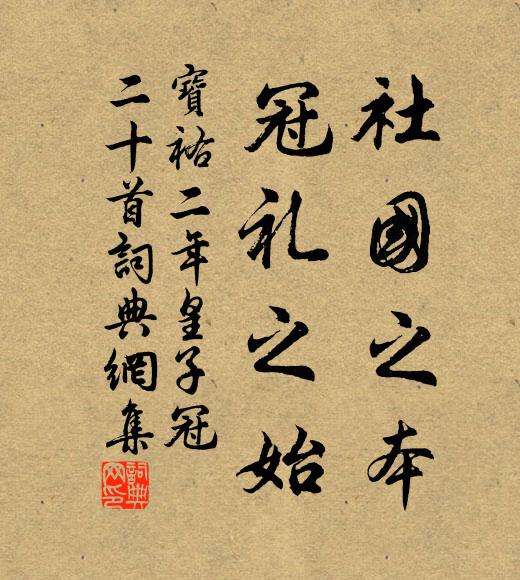 社國之本
冠礼之始
寶祐二年皇子冠
二十首詞典網集
詞典
网印